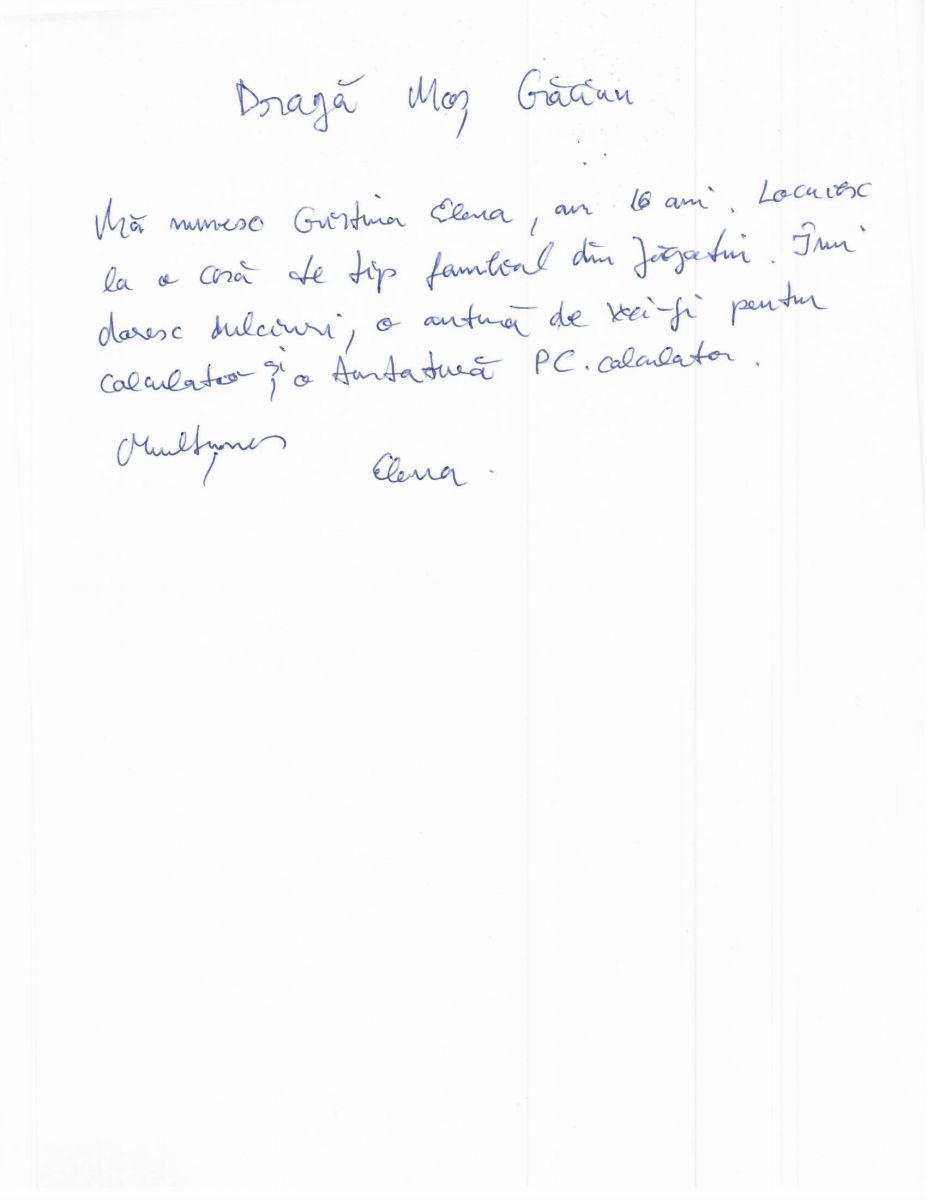 Dragă Moș Crăciun
Mă numesc Cristina Elena, am 16 ani. Locuiesc
la o casă de tip familial din. Îmi
doresc dulciuri, o antenă de wi-fi pentru
calculator și o tastatură PC. calculator.
Mulțumesc
Elena.